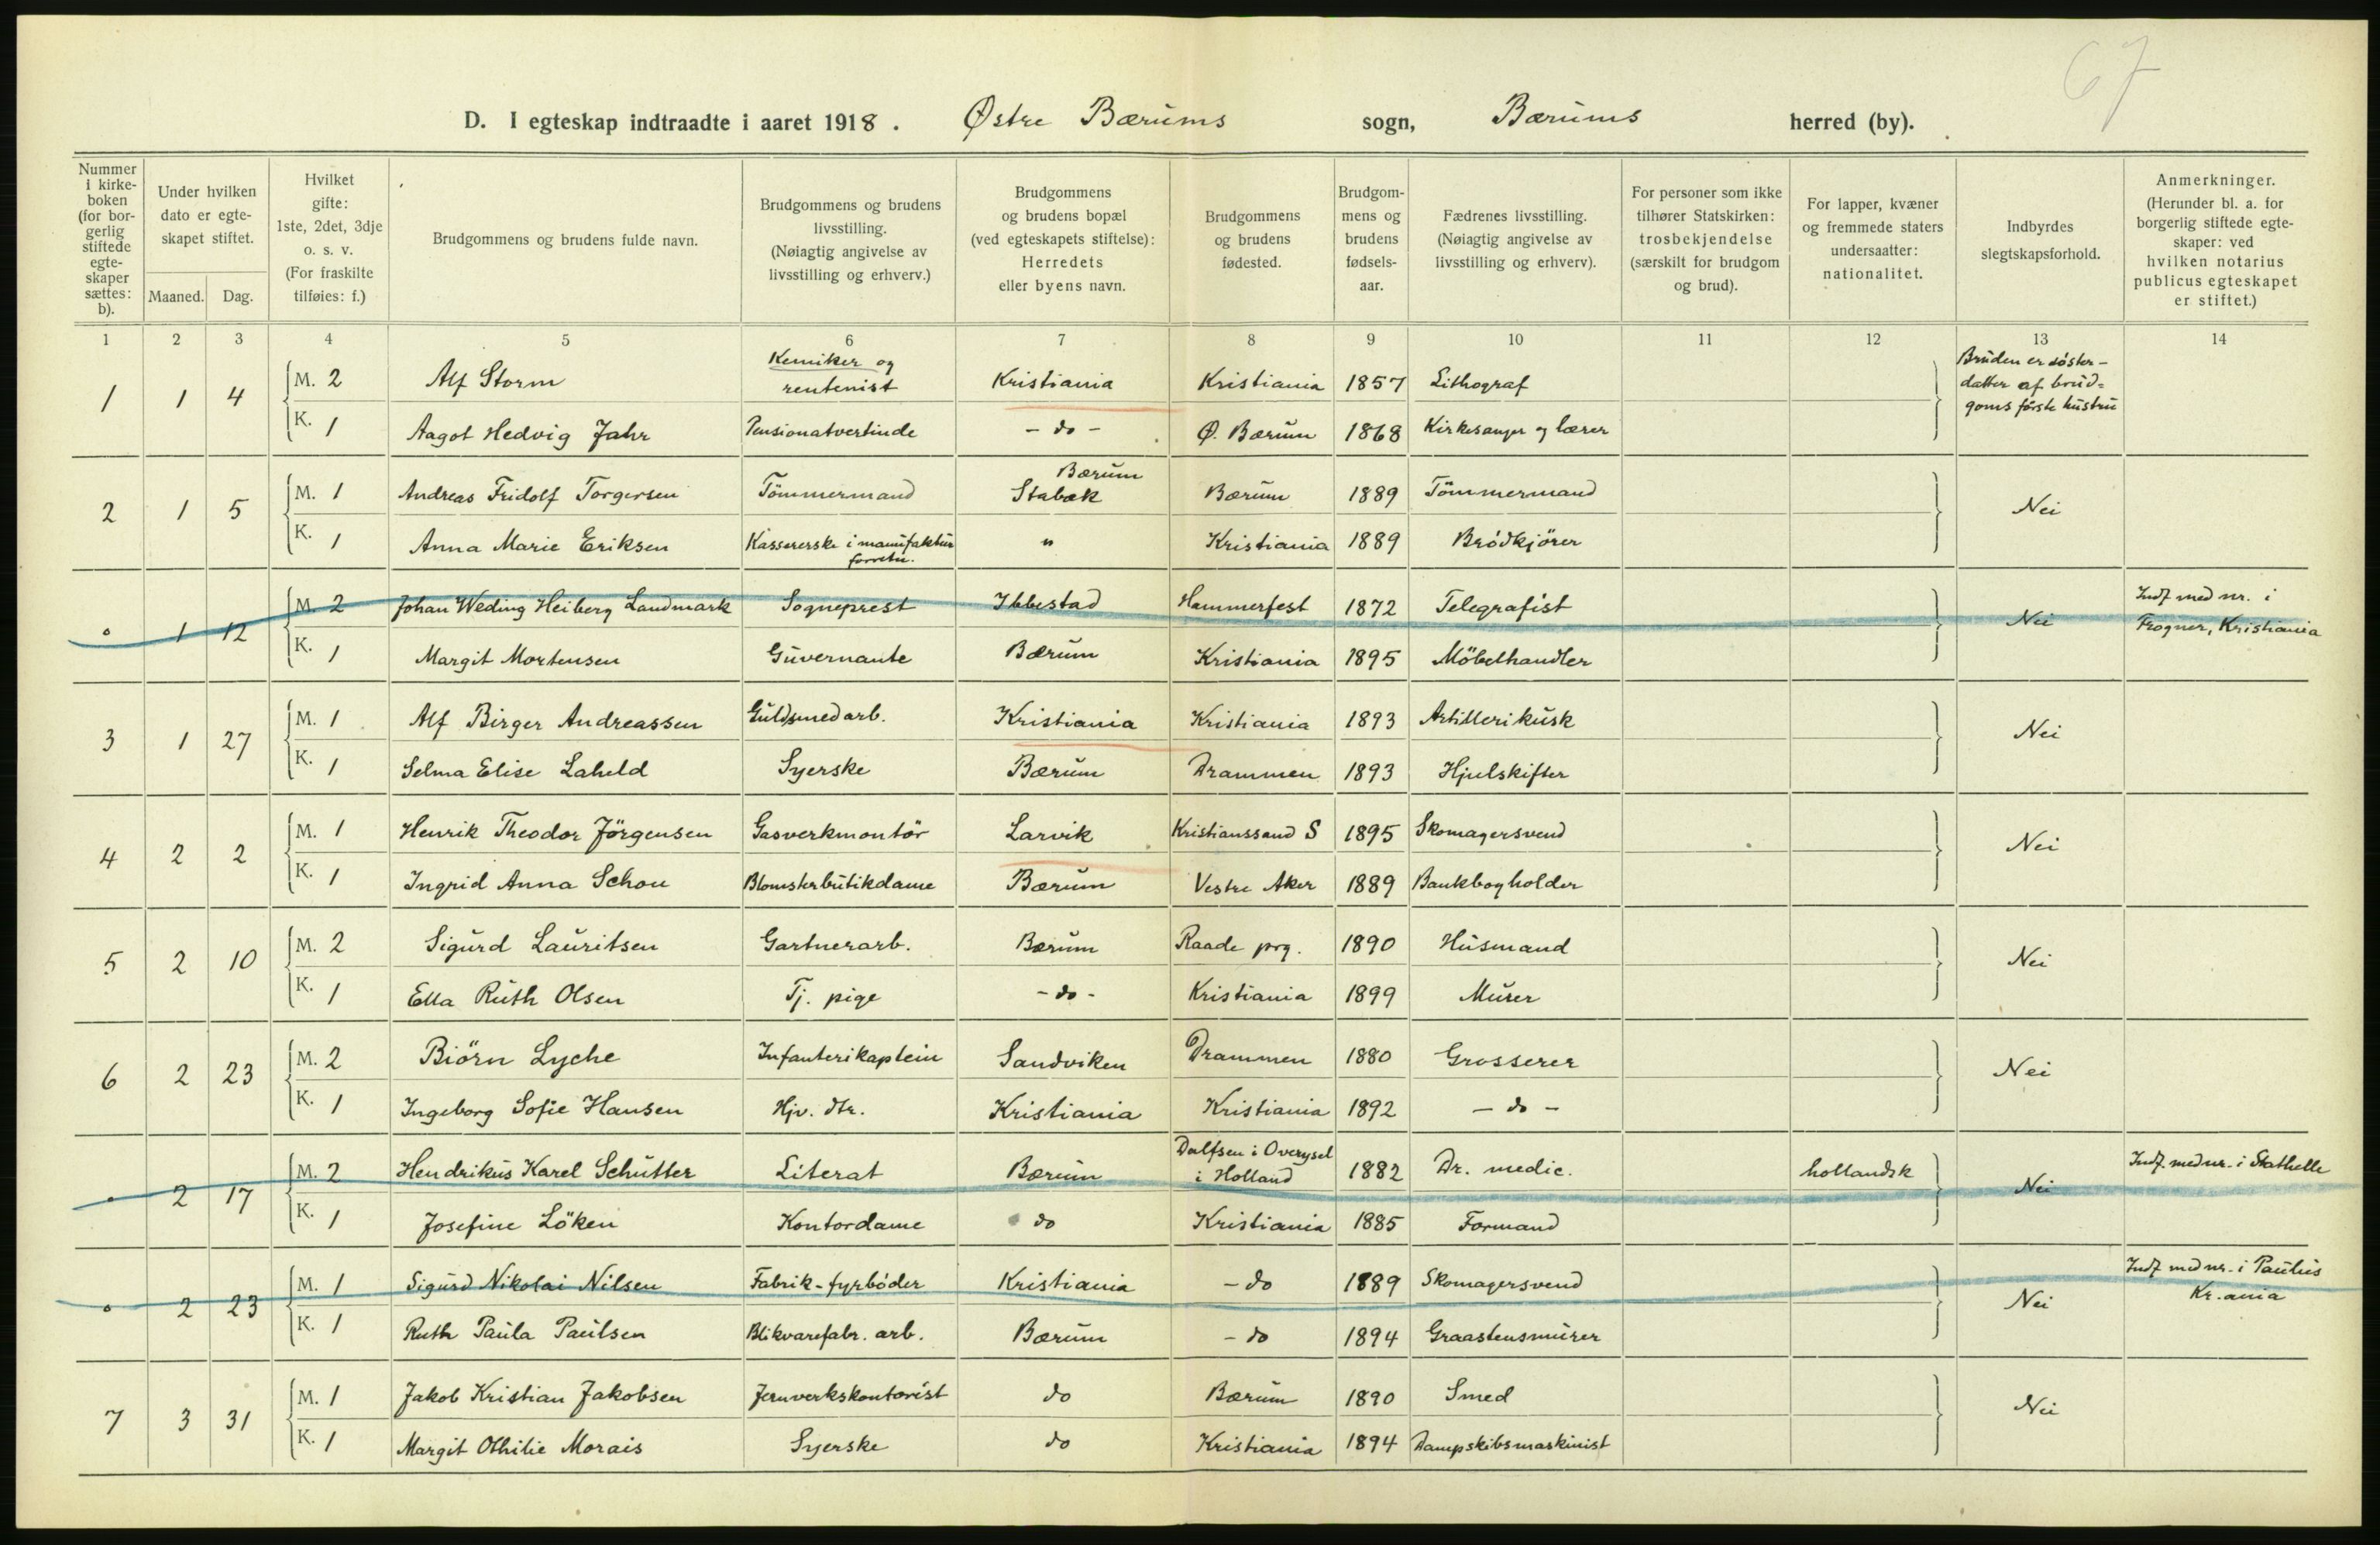 67
D. I egteskap indtraadte i aaret 1918. Østre Bærums sogn, Bærums herred (by).
Nummer i kirke-boken (for bor-gerlig stiftede egte-skaper sættes: b).
Under hvilken dato er egte-skapet stiftet.
Maaned. Dag.
Hvilket gifte: 1ste, 2det, 3dje o. s. v. (For fraskilte tilføies: f.)
Brudgommens og brudens fulde navn.
Brudgommens og brudens livsstilling. (Nøiagtig angivelse av livsstilling og erhverv.)
Brudgommens og brudens bopæl (ved egteskapets stiftelse): Herredets eller byens navn.
Brudgommens og brudens fødested.
Brudgom-mens og brudens fødsels-aar.
Fædrenes livsstilling. (Nøiagtig angivelse av livsstilling og erhverv).
For personer som ikke tilhører Statskirken: trosbekjendelse (særskilt for brudgom og brud).
For lapper, kvæner og fremmede staters undersaatter: nationalitet.
Indbyrdes slegtskapsforhold.
Anmerkninger. (Herunder bl. a. for borgerlig stiftede egte-skaper: ved hvilken notarius publicus egteskapet er stiftet.)
1 2 3 4 5 6 7 8 9 10 11 12 13 14
1 1 4 M. 2 Alf Storm Kemiker og rentenist Kristiania Kristiania 1857 Lithograf Bruden er söster-datter af brud-goms første hustru
K. 1 Aagot Hedvig Jahr Pensionatvertinde - do - Ø. Bærum 1868 Kirkesanger og lærer
2 1 5 M. 1 Andreas Fridolf Torgersen Tömmermand Bærum Stabæk Bærum 1889 Tömmermand Nei
K. 1 Anna Marie Eriksen Kassererske i manufaktur forretn. " Kristiania 1889 Brödkjörer
o 1 12 M. 2 Johan Weding Heiberg Landmark Sogneprest Ibbestad Hammerfest 1872 Telegrafist Nei Indf med nr. i Frogner, Kristiania
K. 1 Margit Mortensen Guvernante Bærum Kristiania 1895 Möbelhandler
3 1 27 M. 1 Alf Birger Andreassen Guldsmedarb. Kristiania Kristiania 1893 Artillerikusk Nei
K. 1 Selma Elise Laheld Syerske Bærum Drammen 1893 Hjulskifter
4 2 2 M. 1 Henrik Theodor Jörgensen Gasverkmontör Larvik Kristianssand S 1895 Skomagersvend Nei
K. 1 Ingrid Anna Schou Blomsterbutikdame Bærum Vestre Aker 1889 Bankbogholder
5 2 10 M. 2 Sigurd Lauritsen Gartnerarb. Bærum Raade prg. 1890 Husmand Nei
K. 1 Ella Ruth Olsen Tj. pige - do - Kristiania 1899 Murer
6 2 23 M. 2 Biörn Lyche Infanterikaptein Sandviken Drammen 1880 Grosserer Nei
K. 1 Ingeborg Sofie Hansen Hjv. dtr. Kristiania Kristiania 1892 - do -
o 2 17 M. 2 Hendrikus Karel Schutter Literat Bærum Dalfsen i Overysel i Holland 1882 Dr. medic. hollandsk Nei Indf. med nr. i Stathelle
K. 1 Josefine Löken Kontordame do Kristiania 1885 Formand
o 2 23 M. 1 Sigurd Nikolai Nilsen Fabrik-fyrböder Kristiania - do 1889 Skomagersvend Nei Indf med nr. i Paulus Kr.ania
K. 1 Ruth Paula Paulsen Blikvarefabr. arb. Bærum - do 1894 Graastensmurer
7 3 31 M. 1 Jakob Kristian Jakobsen Jernverkskontorist do Bærum 1890 Smed Nei
K. 1 Margit Othilie Morais Syerske do Kristiania 1894 Dampskibsmaskinist